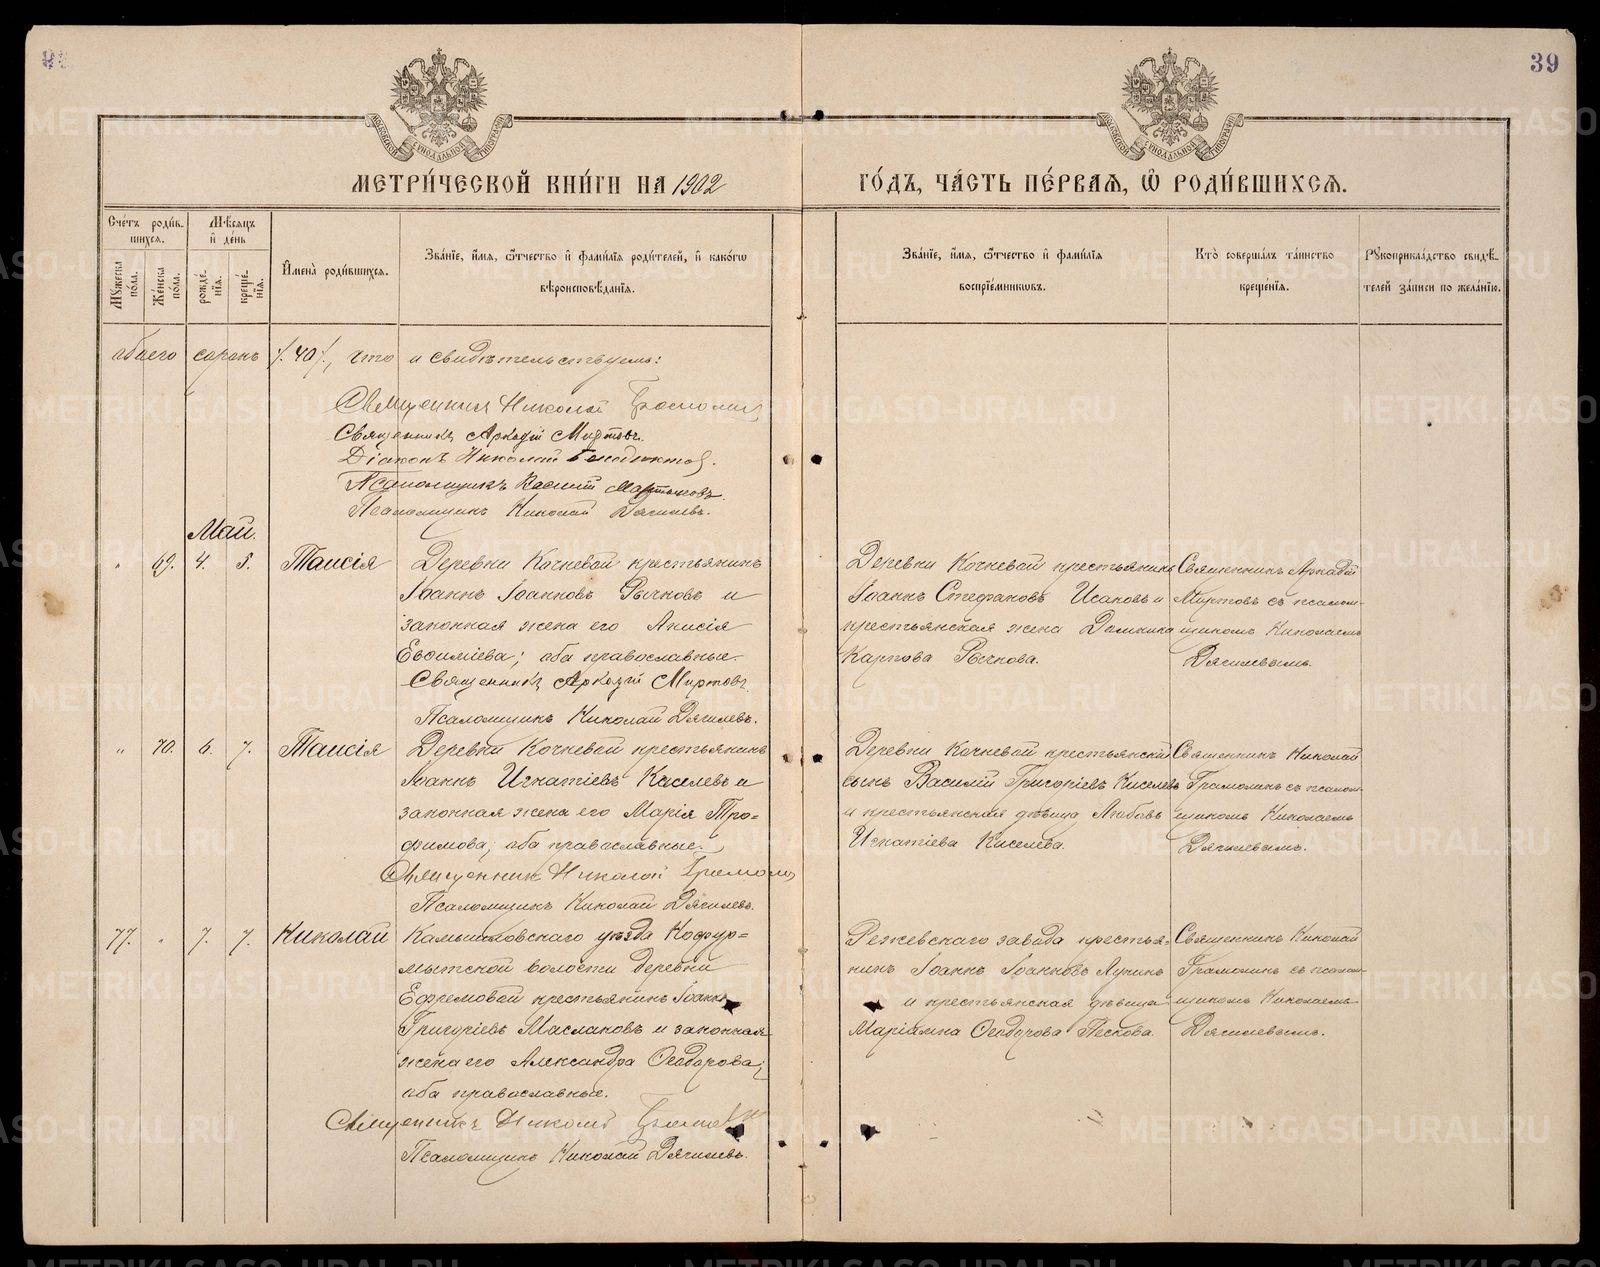 39
МОСКОВСКОЙ СѴНОДАЛЬНОЙ ТИПОГРАФІИ
МОСКОВСКОЙ СѴНОДАЛЬНОЙ ТИПОГРАФІИ
МЕТРИ́ЧЕСКОЙ КНИ́ГИ НА 1902
ГО́ДЪ, ЧА́СТЬ ПЕ́РВАѦ, Ѡ҆ РОДИ́ВШИХСѦ.
Сче́тъ роди́в-
шихсѧ.
Мꙋ́жеска по́ла.
Же́нска по́ла.
Мѣ́сѧцъ
и҆ де́нь
рожде́нїѧ.
креще́нїѧ.
И҆мена̀ роди́вшихсѧ.
Зва́нїе, и҆́мѧ, ѻ҆́тчество и҆ фами́лїѧ роди́телей, и҆ како́гѡ
вѣроисповѣ́данїѧ.
Зва́нїе, и҆́мѧ, ѻ҆́тчество и҆ фами́лїѧ
воспрїе́мникѡвъ.
Кто̀ соверша́лъ та́инство
креще́нїѧ.
Рꙋкоприкла́дство свидѣ́-
телей за́писи по жела́нїю.
обоего сорокъ /. 40 /., что и свидѣтельствуемъ:
Священникъ Николай
Священникъ Аркадій Миртовъ.
Діаконъ Николай
Псаломщикъ Василій
Псаломщикъ Николай Дягилевъ.
Май.
" 69. 4. 5. Таисія
Деревни Кочневой крестьянинъ
Іоаннъ Іоанновъ Рычковъ и
законная жена его Анисія
Евѳиміева; оба православные.
Священникъ Аркадій Миртовъ.
Псаломщикъ Николай Дягилевъ.
Деревни Кочневой крестьянинъ
Іоаннъ Стефановъ Исаковъ и
крестьянская жена Домника
Карпова Рычкова.
Священникъ Аркадій
Миртовъ съ псалом-
щикомъ Николаемъ
Дягилевымъ.
" 70. 6. 7. Таисія
Деревни Кочневой крестьянинъ
Іоаннъ Игнатіевъ Киселевъ и
законная жена его Марія Тро-
фимова; оба православные.
Священникъ Николай
Псаломщикъ Николай Дягилевъ.
Деревни Кочневой крестьянскій
сынъ Василій Григоріевъ Киселевъ
и крестьянская дѣвица Любовь
Игнатіева Киселева.
Священникъ Николай
Грамолинъ съ псалом-
щикомъ Николаемъ
Дягилевымъ.
77. " 7. 7. Николай
Камышловскаго уѣзда Кочур-
мытской волости деревни
Ефремовой крестьянинъ Іоаннъ
Григоріевъ Маслаковъ и законная
жена его Александра Ѳеодорова;
оба православные.
Священникъ Николай
Псаломщикъ Николай Дягилевъ.
Режевскаго завода крестья-
нинъ Іоаннъ Іоанновъ Лукинъ
и крестьянская дѣвица
Маріамна Ѳеодорова Пескова.
Священникъ Николай
Грамолинъ съ псалом-
щикомъ Николаемъ
Дягилевымъ.
METRIKI.GASO-URAL.RU